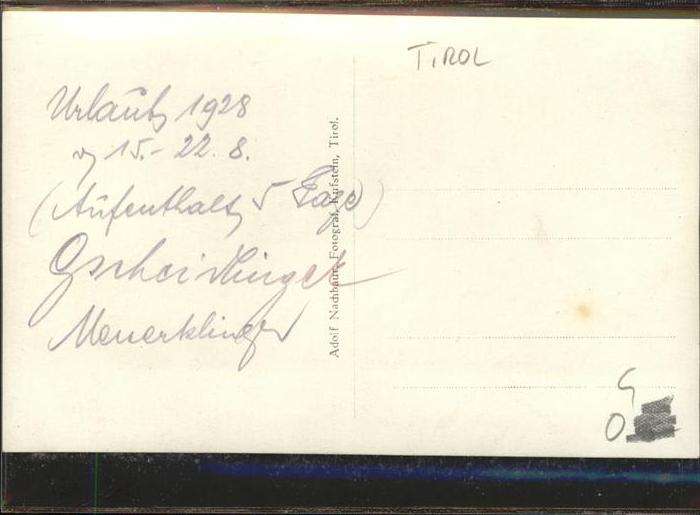 Urlaub 1928
v. 15.- 22. 8.
(Aufenthalt 5 Tage)
Gscheidlinger
Meuerklinger
Adolf Nachbaur, Fotograf, Kufstein, Tirol.
TIROL